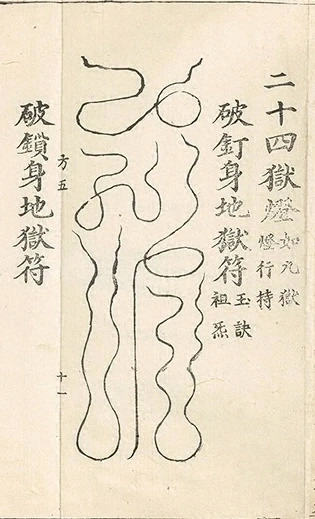 二十四獄燈如九獄
燈行持
破釘身地獄符玉訣
祖炁
方五
十一
破鎖身地獄符